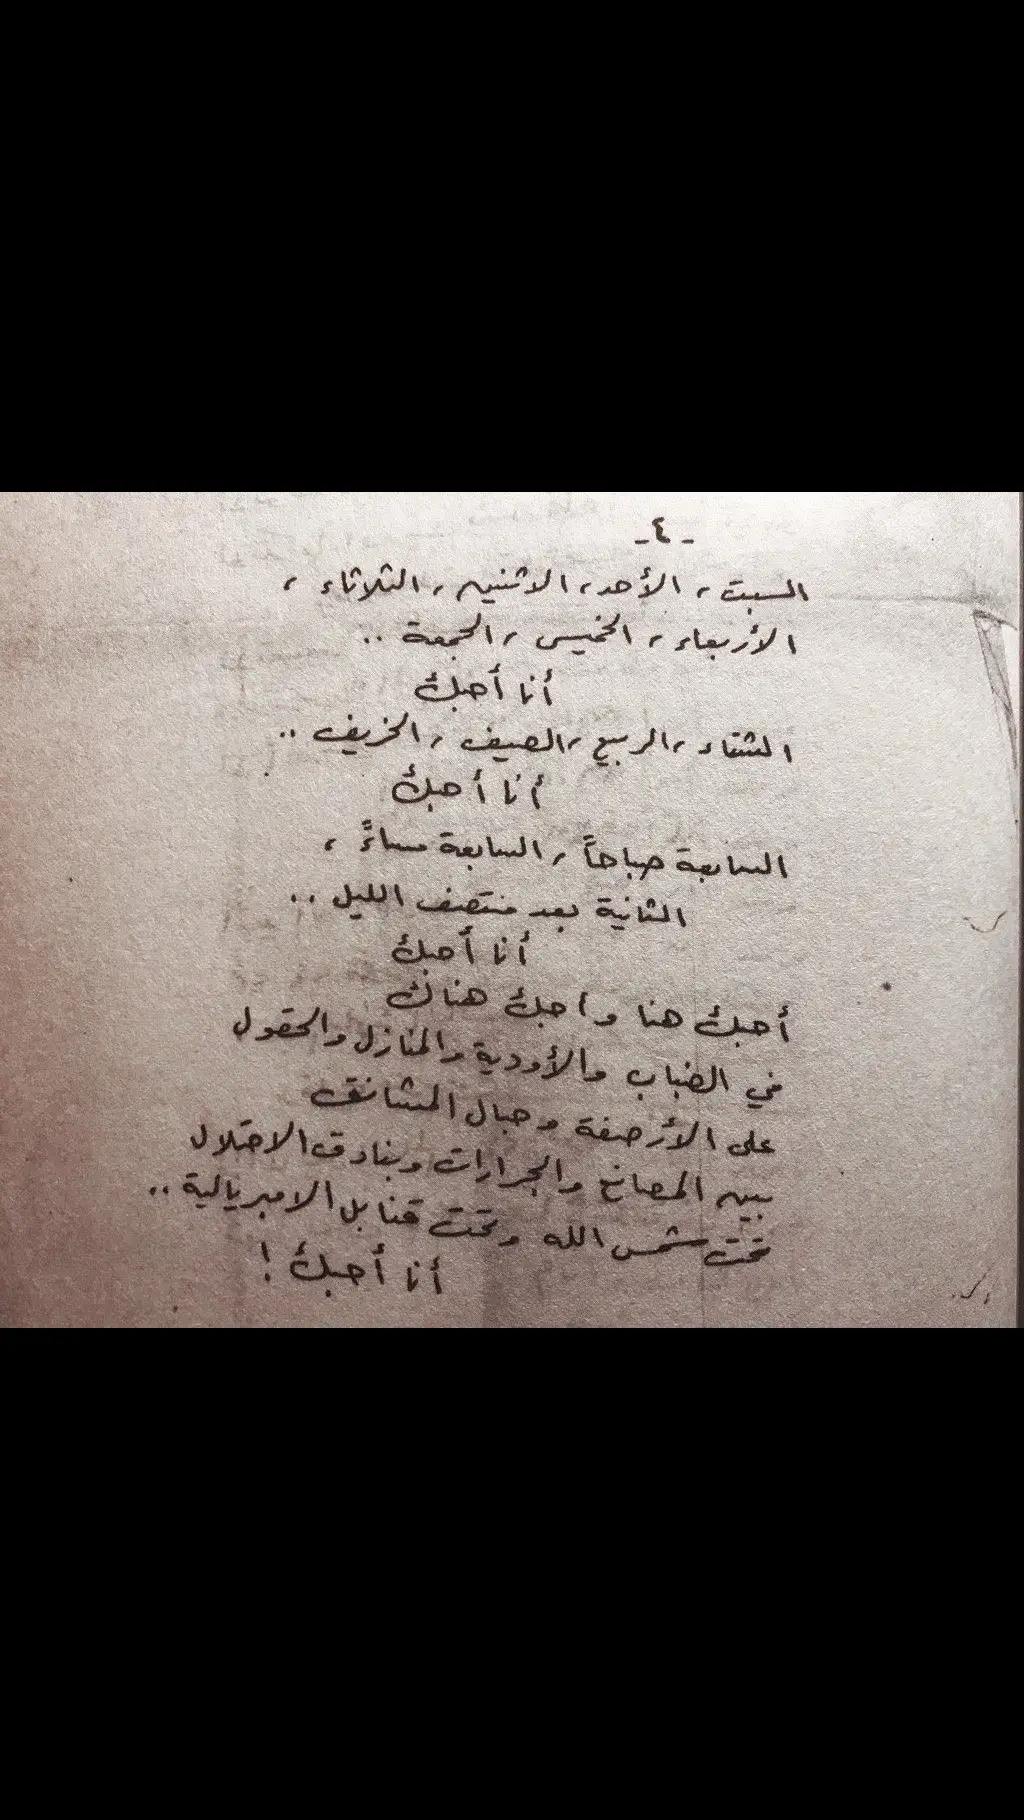 - ٤ -
السبت ، الأحد ، الاثنين ، الثلاثاء ،
الأربعاء ، الخميس ، الجمعة ..
أنا أحبك
الشتاء ، الربيع ، الصيف ، الخريف ..
أنا أحبك
السابعة صباحاً ، السابعة مساءً ،
الثانية بعد منتصف الليل ..
أنا أحبك
أحبك هنا واحبك هناك
في الضباب والأودية والمنازل والحقول
على الأرصفة وحبال المشانق
بين المصانع والجرارات وبنادق الاحتلال
تحت شمس الله وتحت قنابل الامبريالية ..
أنا أحبك !